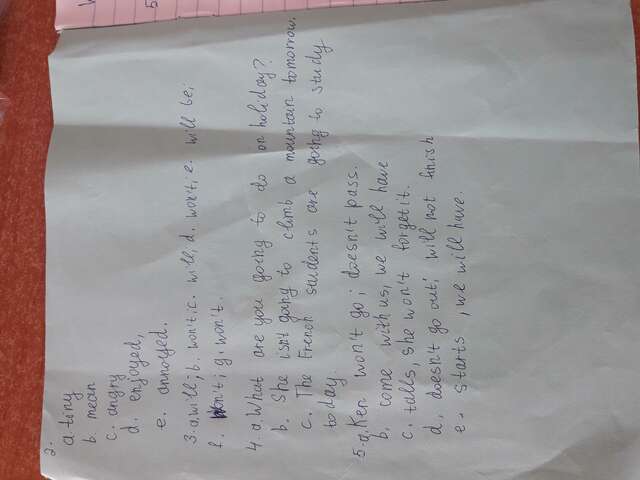 2.
a. tiny
b. mean
c. angry
d. enjoyed,
e. annoyed.
3. a. will; b. won't; c. will; d. won't; e. will be;
f. won't; g. won't.
4. a. What are you going to do on holiday?
b. She isn't going to climb a mountain tomorrow.
c. The French students are going to study
today.
5. a. Ken won't go; doesn't pass.
b. come with us, we will have
c. talls, she won't forget it.
d. doesn't go out; will not finish
e. starts, we will have.
5